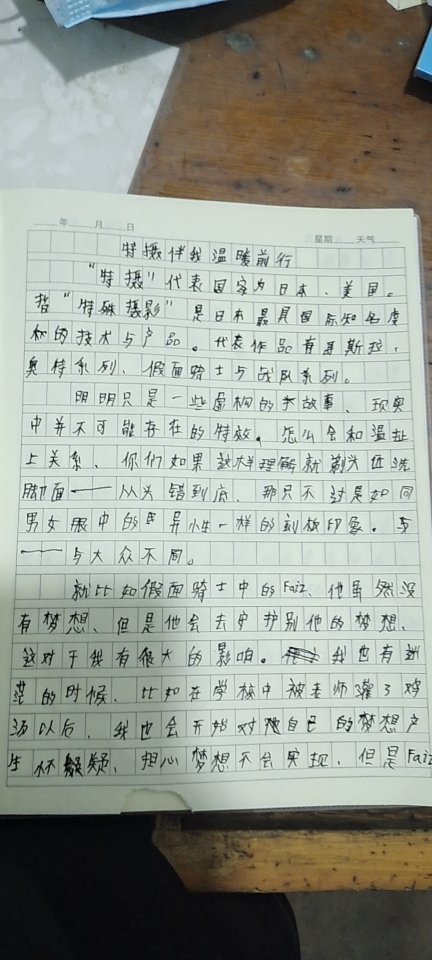 年 月 日
星期 天气
特摄伴我温暖前行
“特摄”代表国家为日本、美国。
指“特殊摄影”是日本最具国际知名度
标的技术与产品。代表作品有哥斯拉、
奥特系列、假面骑士与战队系列。
明明只是一些虚构的故事、现实
中并不可能存在的特效。怎么会和温扯
上关系、你们如果这样理解就剃头匠洗
脚面——从头错到底、那只不过是如同
男女眼中的异性一样的刻板印象。
——与大众不同。
就比如假面骑士中的Faiz、他虽然没
有梦想、但是他会去守护别他的梦想、
这对于我有很大的影响。我也有迷
茫的时候、比如在学校中被老师灌了鸡
汤以后、我也会开始对自己的梦想产
生怀疑、担心梦想不会实现、但是Faiz